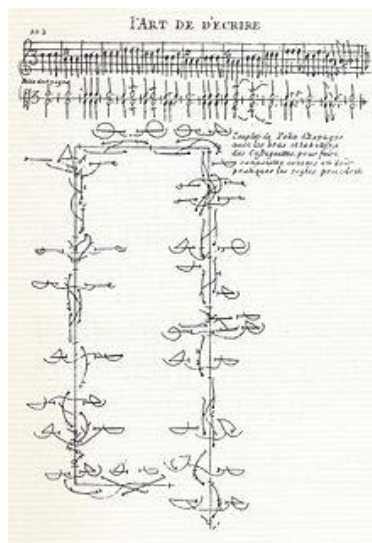 l'ART DE D'ECRIRE
Folie d'Espagne
Couplet de Folie d'Espagne
avec les bras et batterie
des Castagnettes, pour faire
connoistre comme on doit
pratiquer les regles